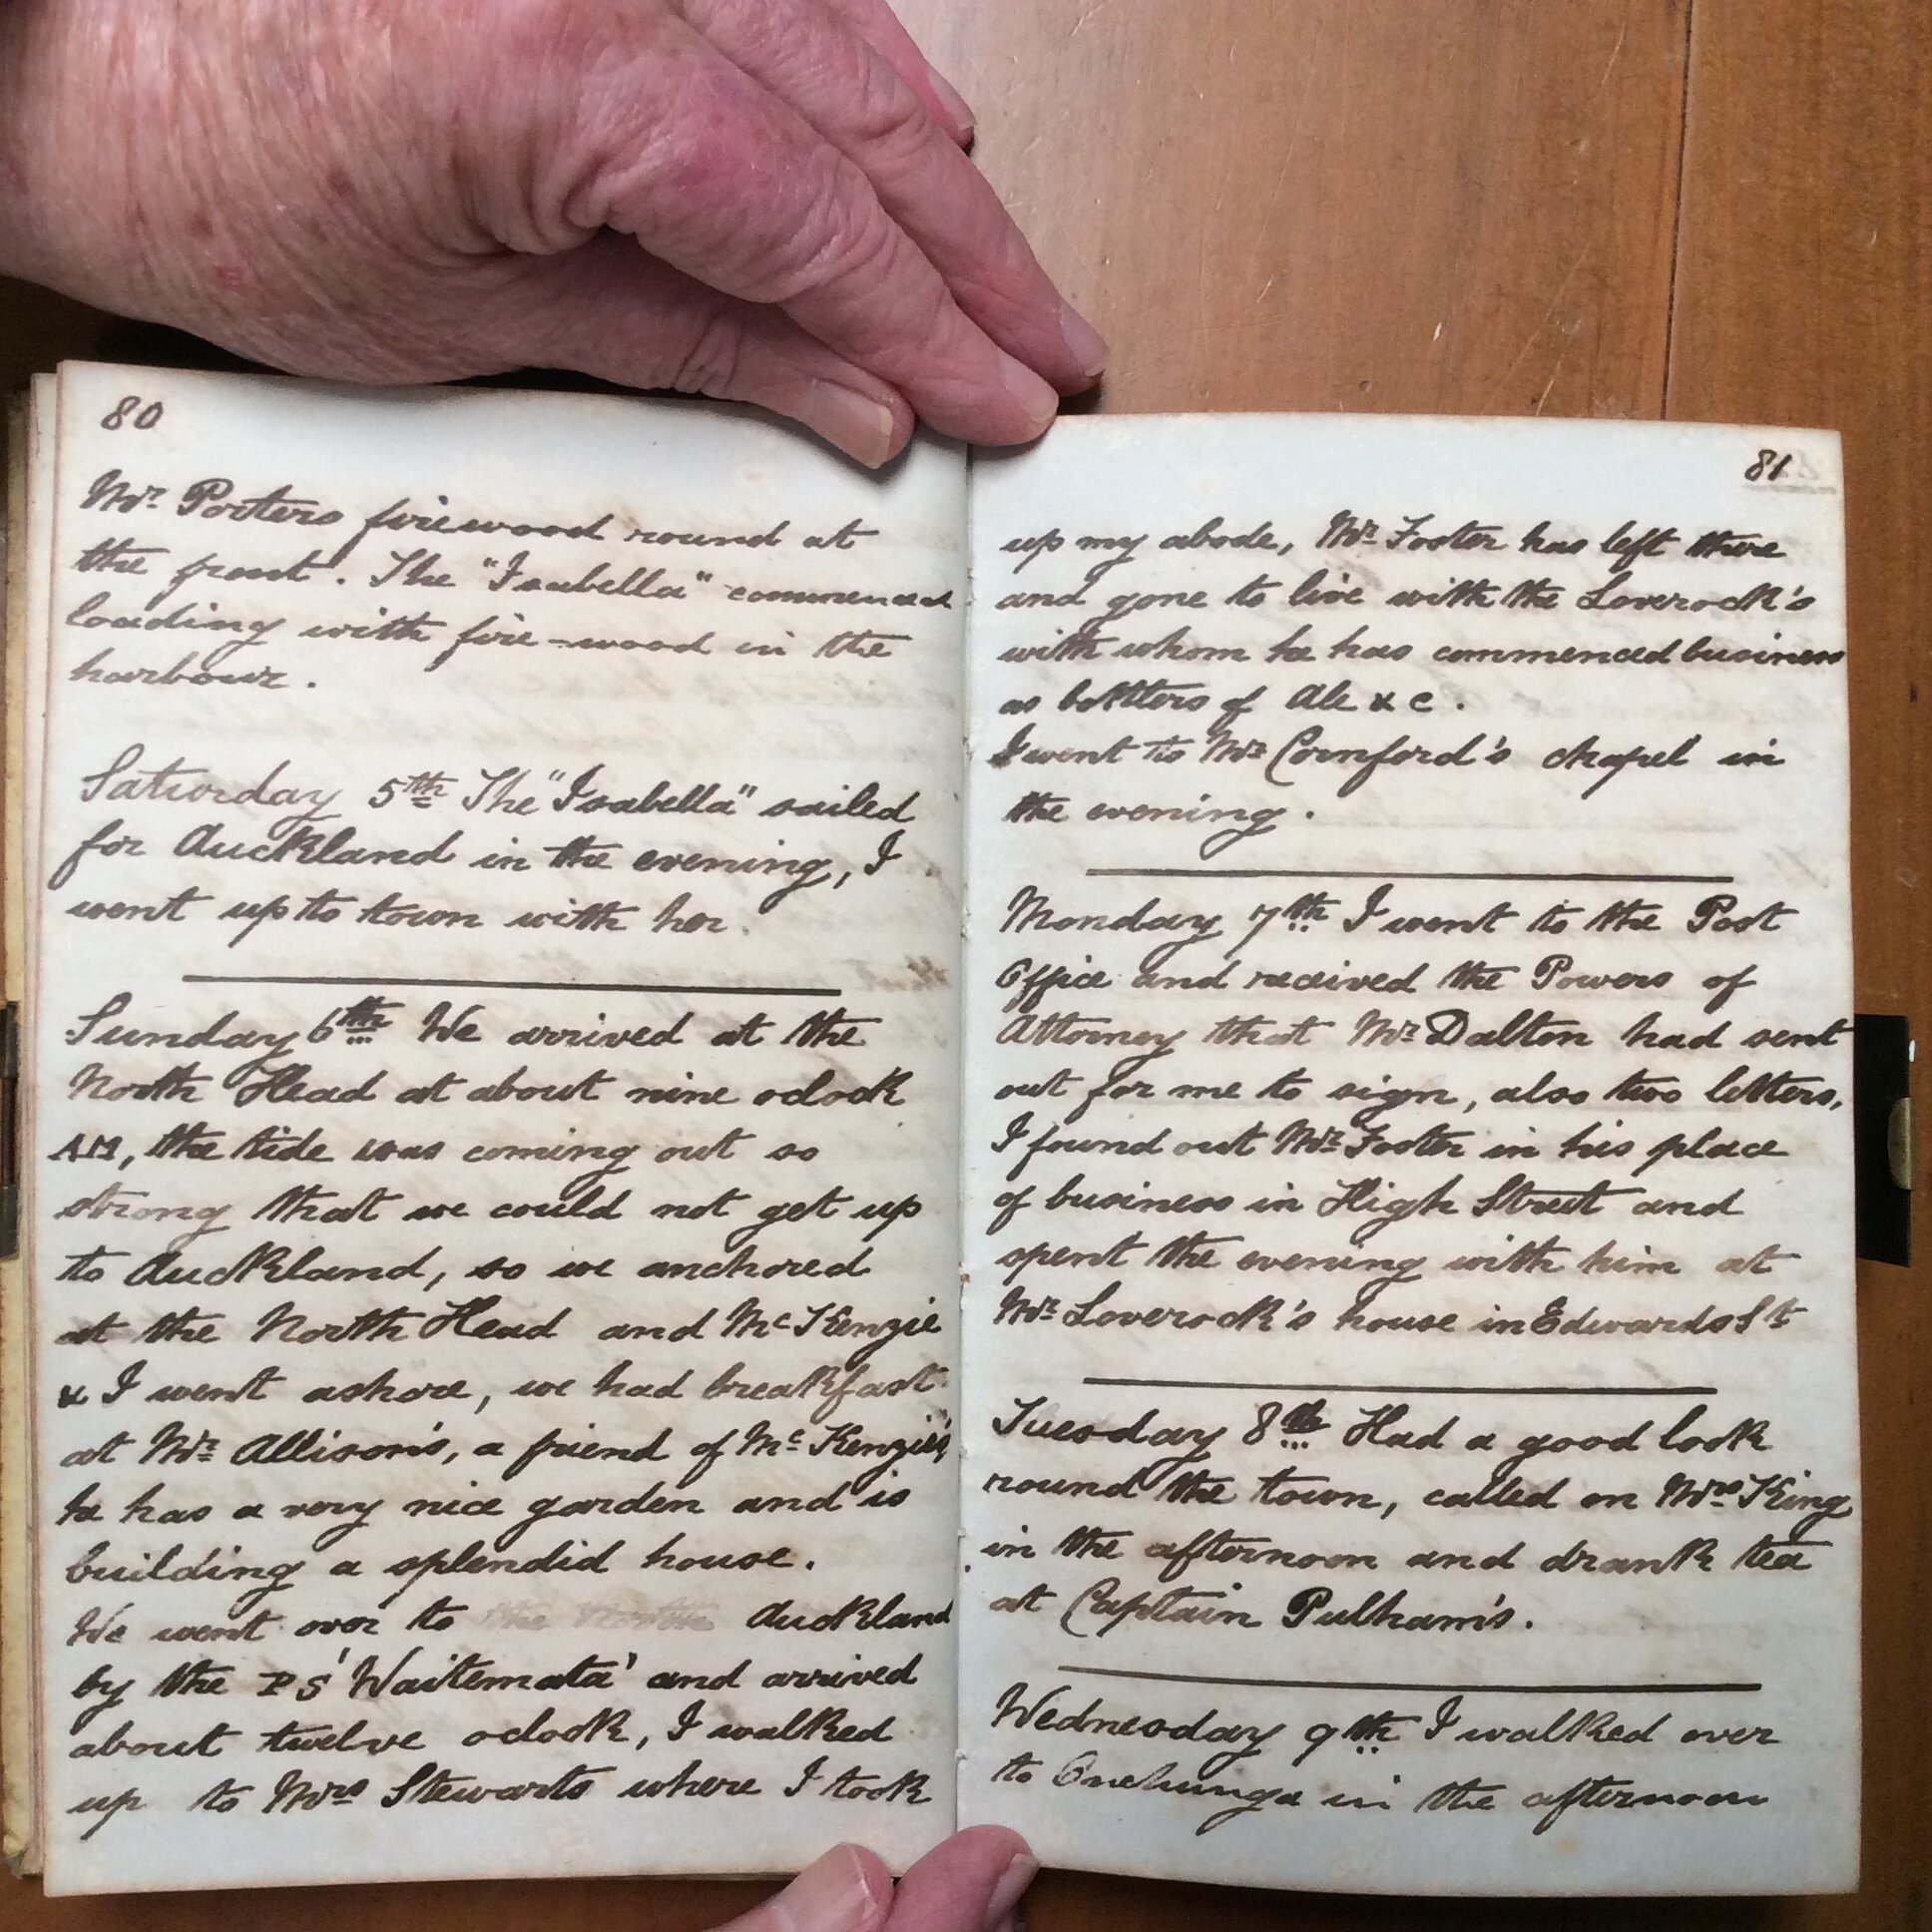 80
Mr. Porters firewood round at
the front. The "Isabella" commenced
loading with fire-wood in the
harbour.
Saturday 5th The "Isabella" sailed
for Auckland in the evening, I
went up to town with her.
Sunday 6th We arrived at the
North Head at about nine oclock
AM, the tide was coming out so
strong that we could not get up
to Auckland, so we anchored
at the North Head and McKenzie
& I went ashore, we had breakfast
at Mr. Allison's, a friend of McKenzie's,
he has a very nice garden and is
building a splendid house.
We went over to the North Auckland
by the PS 'Waitemata' and arrived
about twelve oclock, I walked
up to Mrs Stewarts where I took
81
up my abode, Mr. Foster has left there
and gone to live with the Loverock's
with whom he has commenced business
as bottlers of Ale & c.
I went to Mr. Cornford's chapel in
the evening.
Monday 7th I went to the Post
Office and received the Powers of
Attorney that Mr. Dalton had sent
out for me to sign, also two letters,
I found out Mr. Foster in his place
of business in High Street and
spent the evening with him at
Mr. Loverock's house in Edwards St
Tuesday 8th Had a good look
round the town, called on Mrs King
in the afternoon and drank tea
at Captain Pulham's.
Wednesday 9th I walked over
to Onehunga in the afternoon